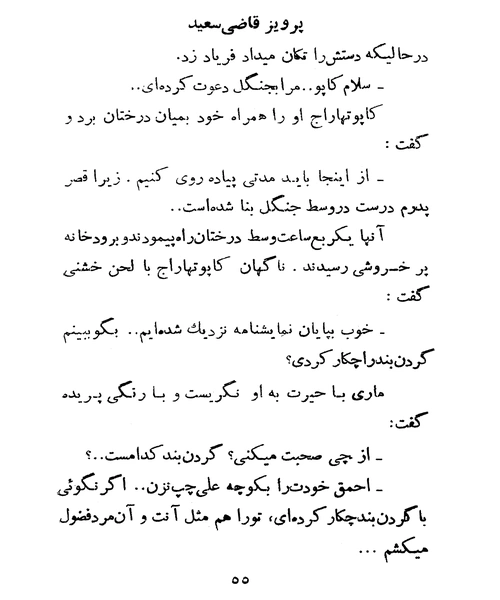 پرویز قاضی سعید
درحالیکه دستش را تکان میداد فریاد زد.
ـ سلام کاپو..مرا بجنگل دعوت کرده‌ای..
کاپوتهاراج او را همراه خود بمیان درختان برد و
گفت :
ـ از اینجا باید مدتی پیاده روی کنیم . زیرا قصر
پدرم درست در وسط جنگل بنا شده‌است..
آنها یکربع‌ساعت‌وسط درختان‌راه‌پیمودند‌و برودخانه
پر خـروشی رسیدند . ناگهان کاپوتهاراج با لحن خشنی
گفت :
ـ خوب بپایان نمایشنامه نزدیك شده‌ایم.. بگو ببینم
گردن‌بند را چکار کردی؟
ماری بـا حیرت به او نگریست و بـا رنگی پـریده
گفت:
ـ از چی صحبت میکنی؟ گردن‌بند کدامست..؟
ـ احمق خودت‌را بکوچه علی‌چپ‌نزن.. اگر نگوئی
با گردن‌بند چکار کرده‌ای، تورا هم مثل آنت و آن‌مرد فضول
میکشم ...
۵۵